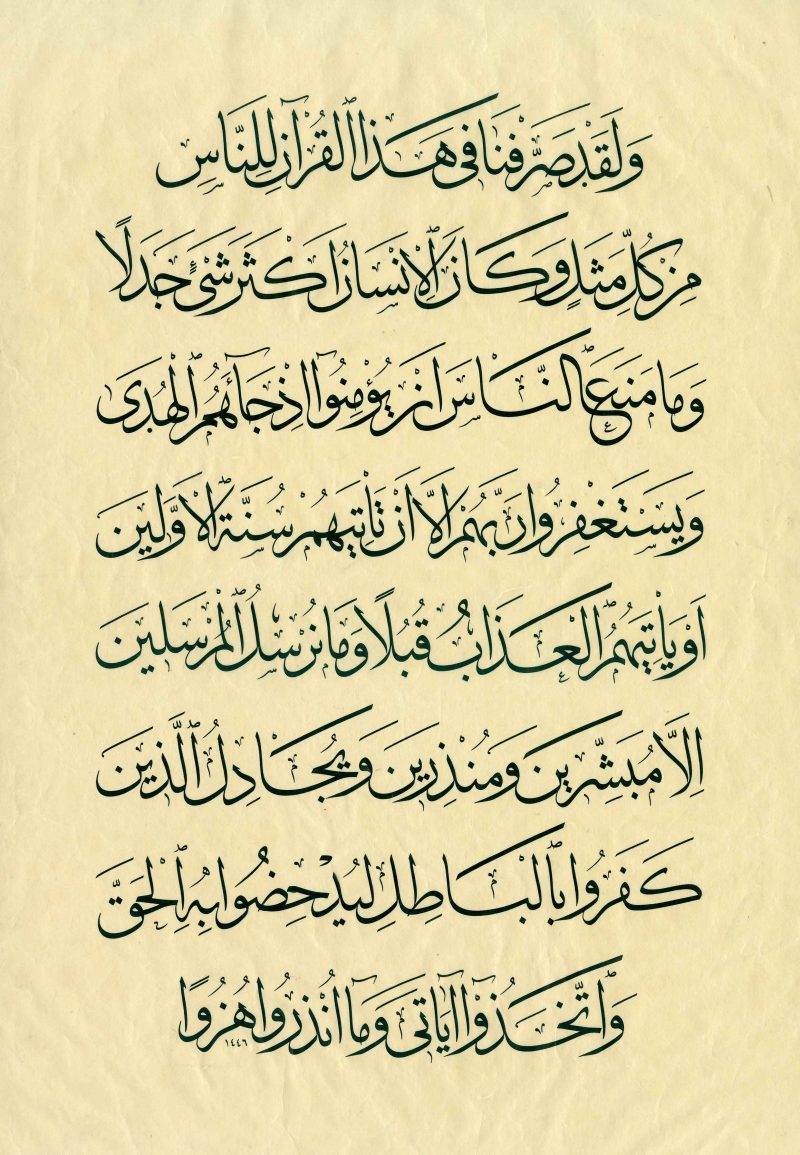 وَلَقَدْ صَرَّفْنَا فِي هَذَا ٱلْقُرْآنِ لِلنَّاسِ
مِنْ كُلِّ مَثَلٍ وَكَانَ ٱلْاِنْسَانُ اَكْثَرَ شَيْءٍ جَدَلًا
وَمَا مَنَعَ ٱلنَّاسَ اَنْ يُؤْمِنُوٓا اِذْ جَٓاءَهُمُ ٱلْهُدَى
وَيَسْتَغْفِرُوا رَبَّهُمْ اِلَّٓا اَنْ تَاْتِيَهُمْ سُنَّةُ ٱلْاَوَّلِينَ
اَوْ يَاْتِيَهُمُ ٱلْعَذَابُ قُبُلًا وَمَا نُرْسِلُ ٱلْمُرْسَلِينَ
اِلَّا مُبَشِّرِينَ وَمُنْذِرِينَ وَيُجَادِلُ ٱلَّذِينَ
كَفَرُوا بِٱلْبَاطِلِ لِيُدْحِضُوا بِهِ ٱلْحَقَّ
وَٱتَّخَذُوٓا اٰيَاتِي وَمَٓا اُنْذِرُوا هُزُوًا
١٤٤٦